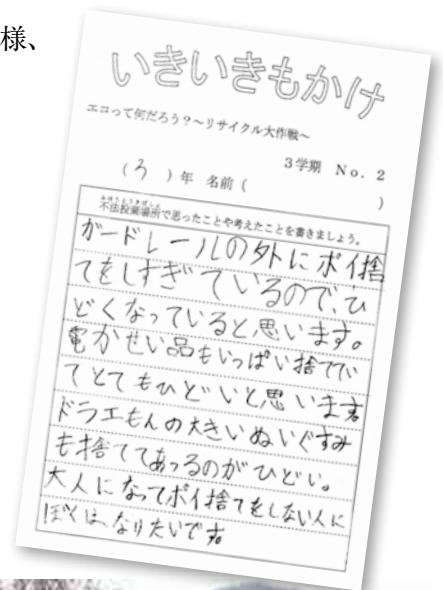 様、
いきいきもかけ
エコって何だろう？～リサイクル大作戦～
3学期 No. 2
（ 3 ）年 名前（ ）
ふほうとうきばしょ
不法投棄場所で思ったことや考えたことを書きましょう。
ガードレールの外にポイ捨
てをしすぎているので、ひ
どくなっていると思います。
電かせい品もいっぱい捨ててい
てとてもひどいと思います。
ドラエもんの大きいぬいぐるみ
も捨ててあっるのがひどい。
大人になってポイ捨てをしない人に
ぼくは、なりたいです。